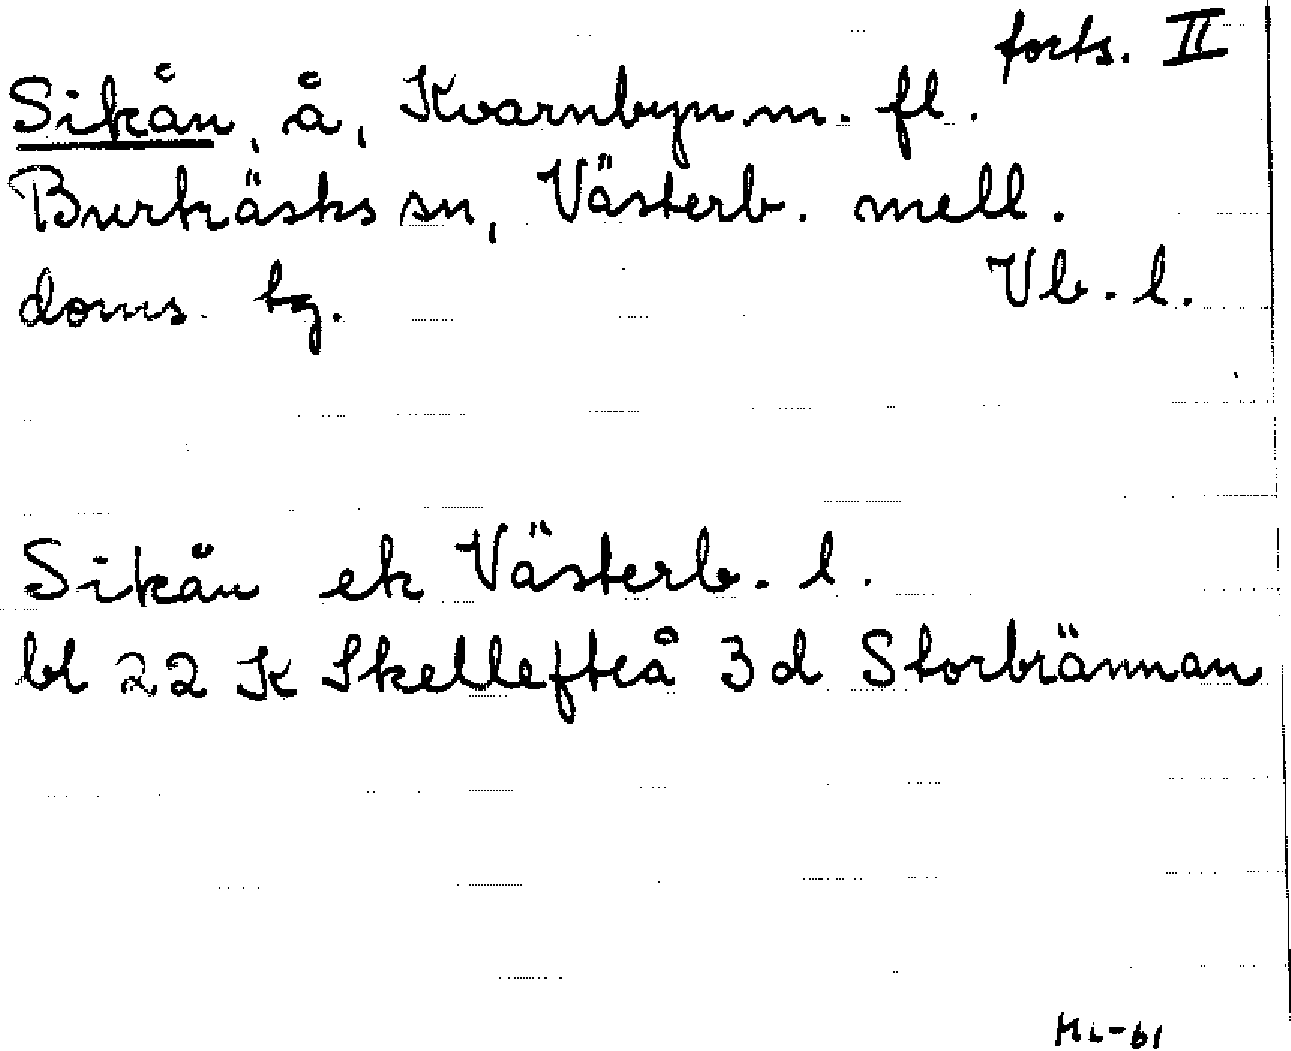 forts. II
Sikån, å, Kvarnbyn m. fl.
Burträsks sn, Västerb. mell.
doms. tg. Vb. l.
Sikån ek Västerb. l.
bl 22 K Skellefteå 3 d Storbrännan